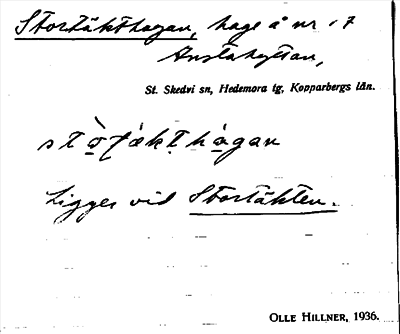 Stortäkthagan, hage å nr 17
Anstahyttan,
St. Skedvi sn, Hedemora tg, Kopparbergs län.
Ligger vid Stortäkten.
OLLE HILLNER, 1936.